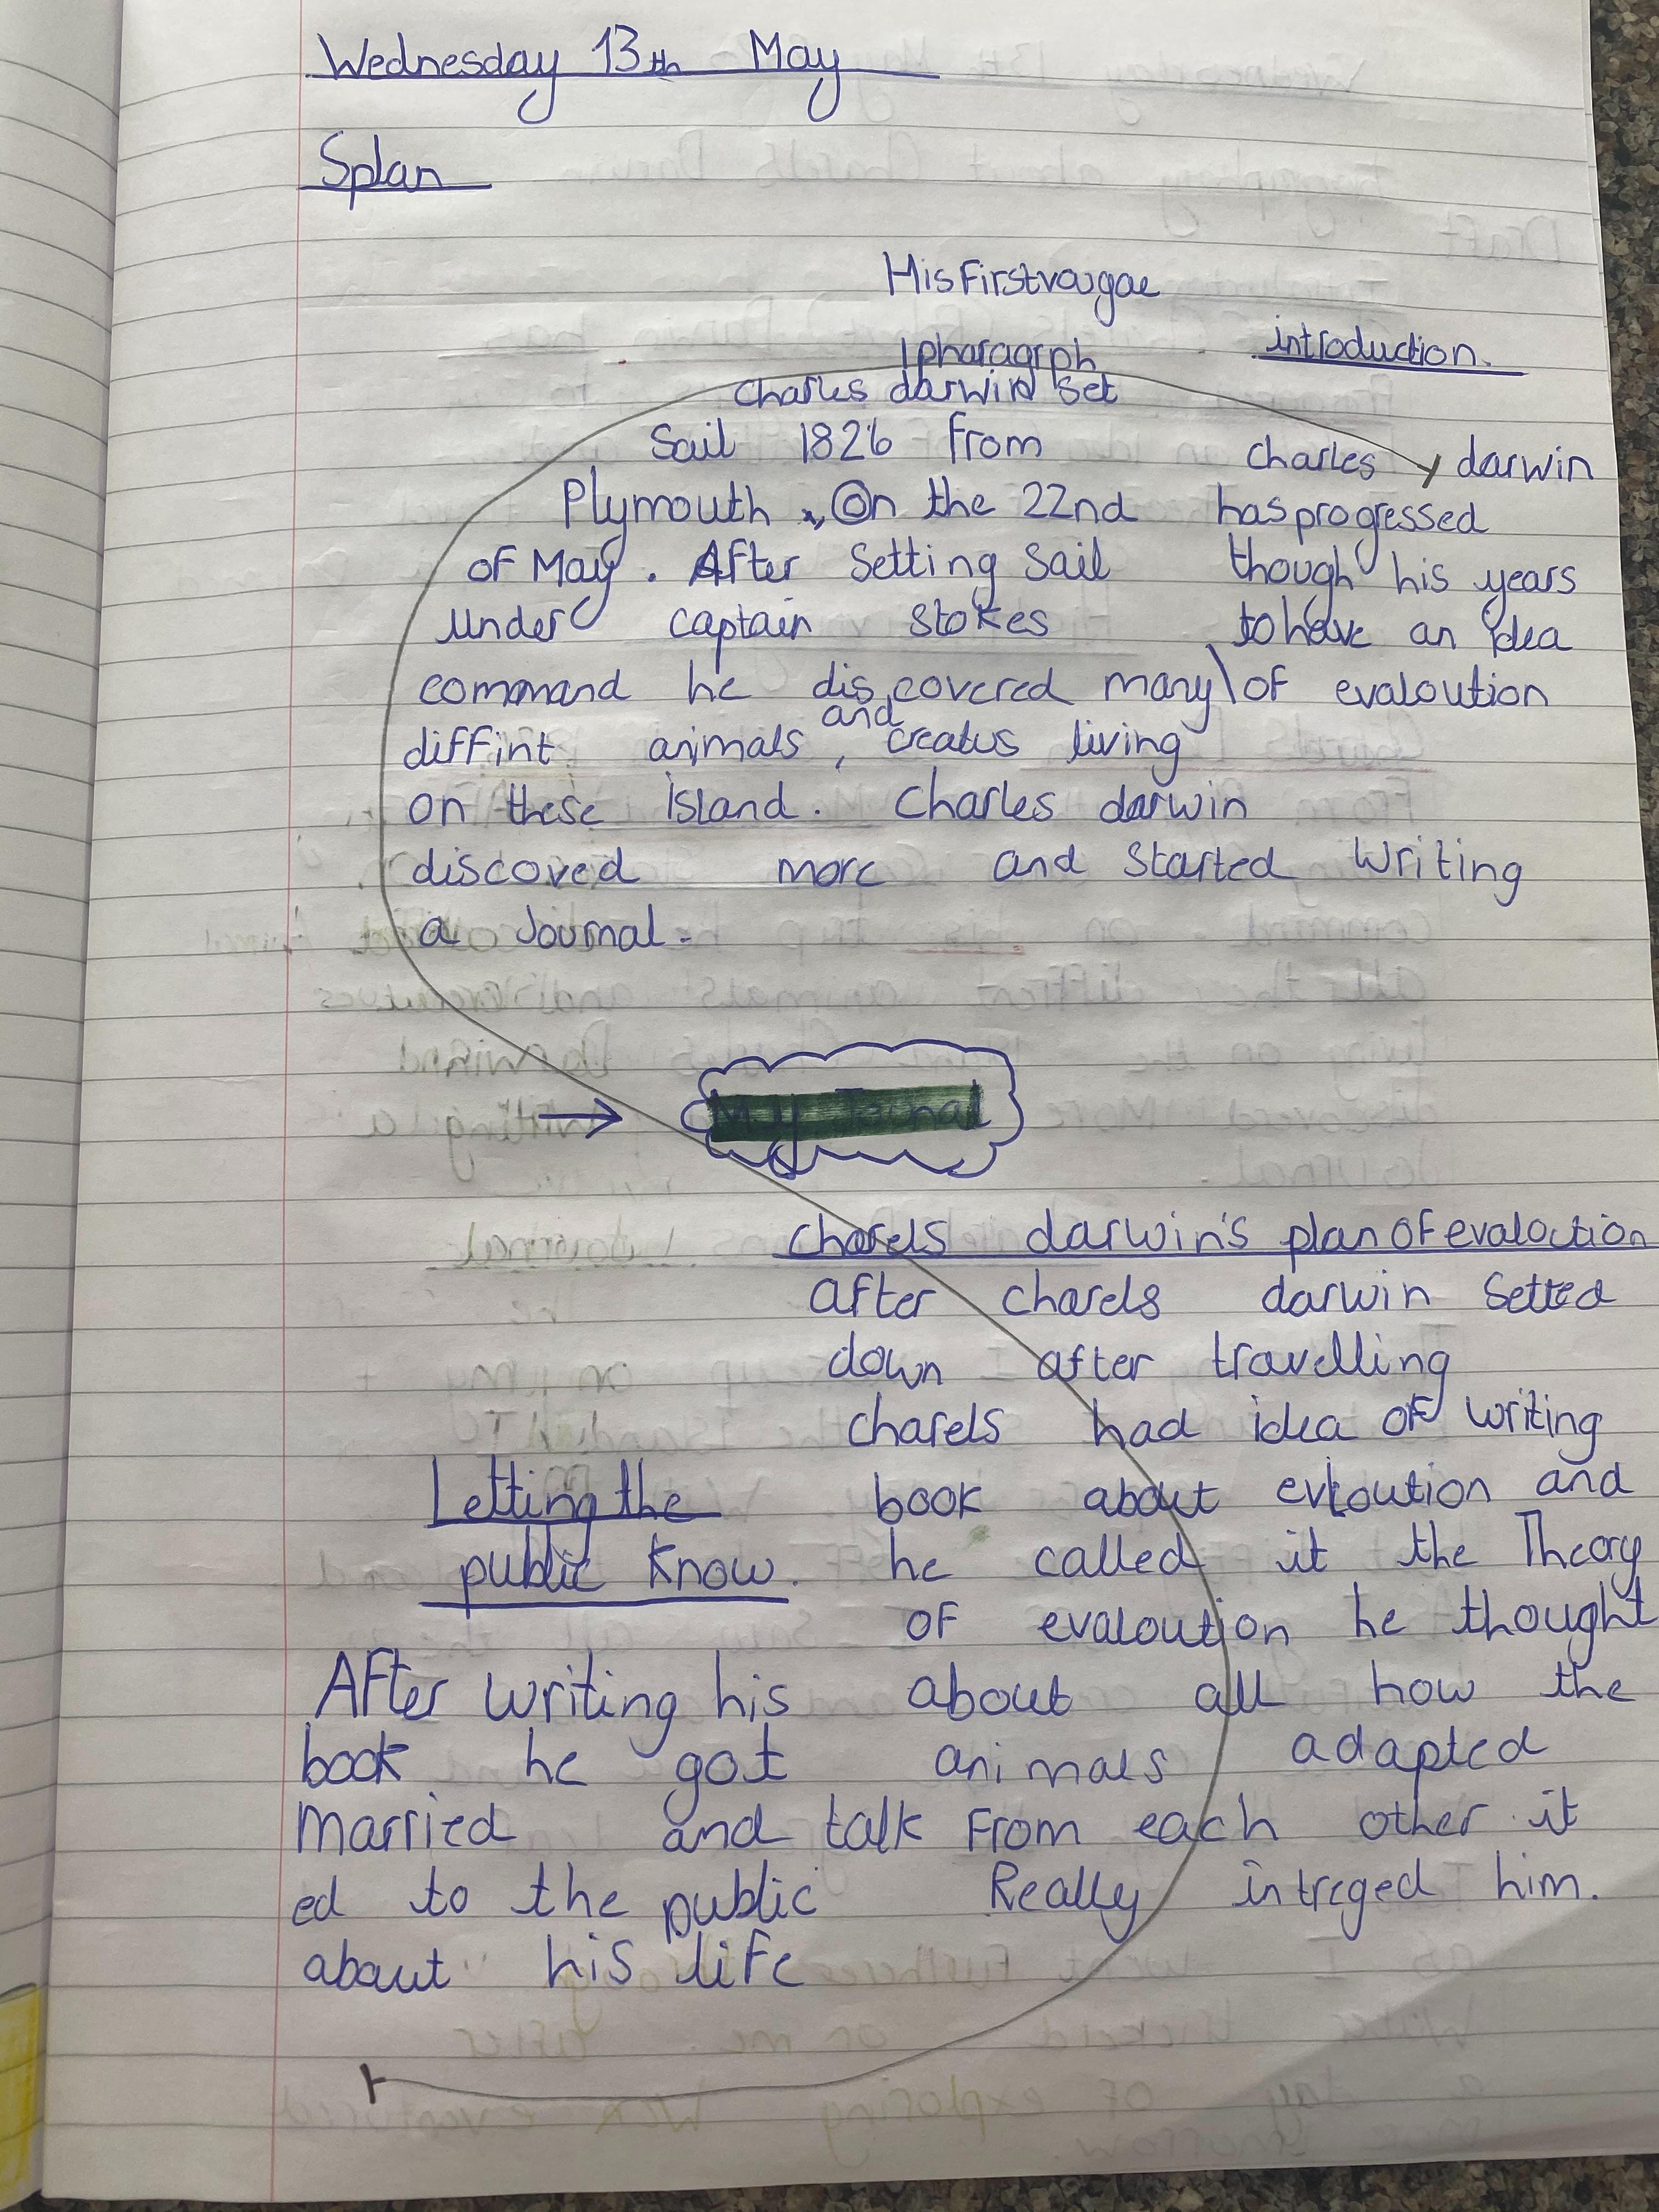 Wednesday 13th May
Splan
His First vougae
1 pharagrph
Charles darwin set
Sail 1826 from
Plymouth, On the 22nd
of May. After Setting Sail
under captain Stokes
command he discovered many
diffint animals, and creatus living
on these Island. Charles darwin
discoved more and Started Writing
a Journal.
introduction.
Charles darwin
has progressed
though his years
to have an idea
of evaloution
My Jornal
charels darwin's plan OF evaloction
after charels darwin Setted
down after travelling
charels had idea OF writing
book about evloution and
he called it the Theory
OF evaloution he thought
about all how the
animals adapted
From each other it
Really intreged him.
Letting the
public Know.
AFter writing his
book he got
married and talk
ed to the public
about his life